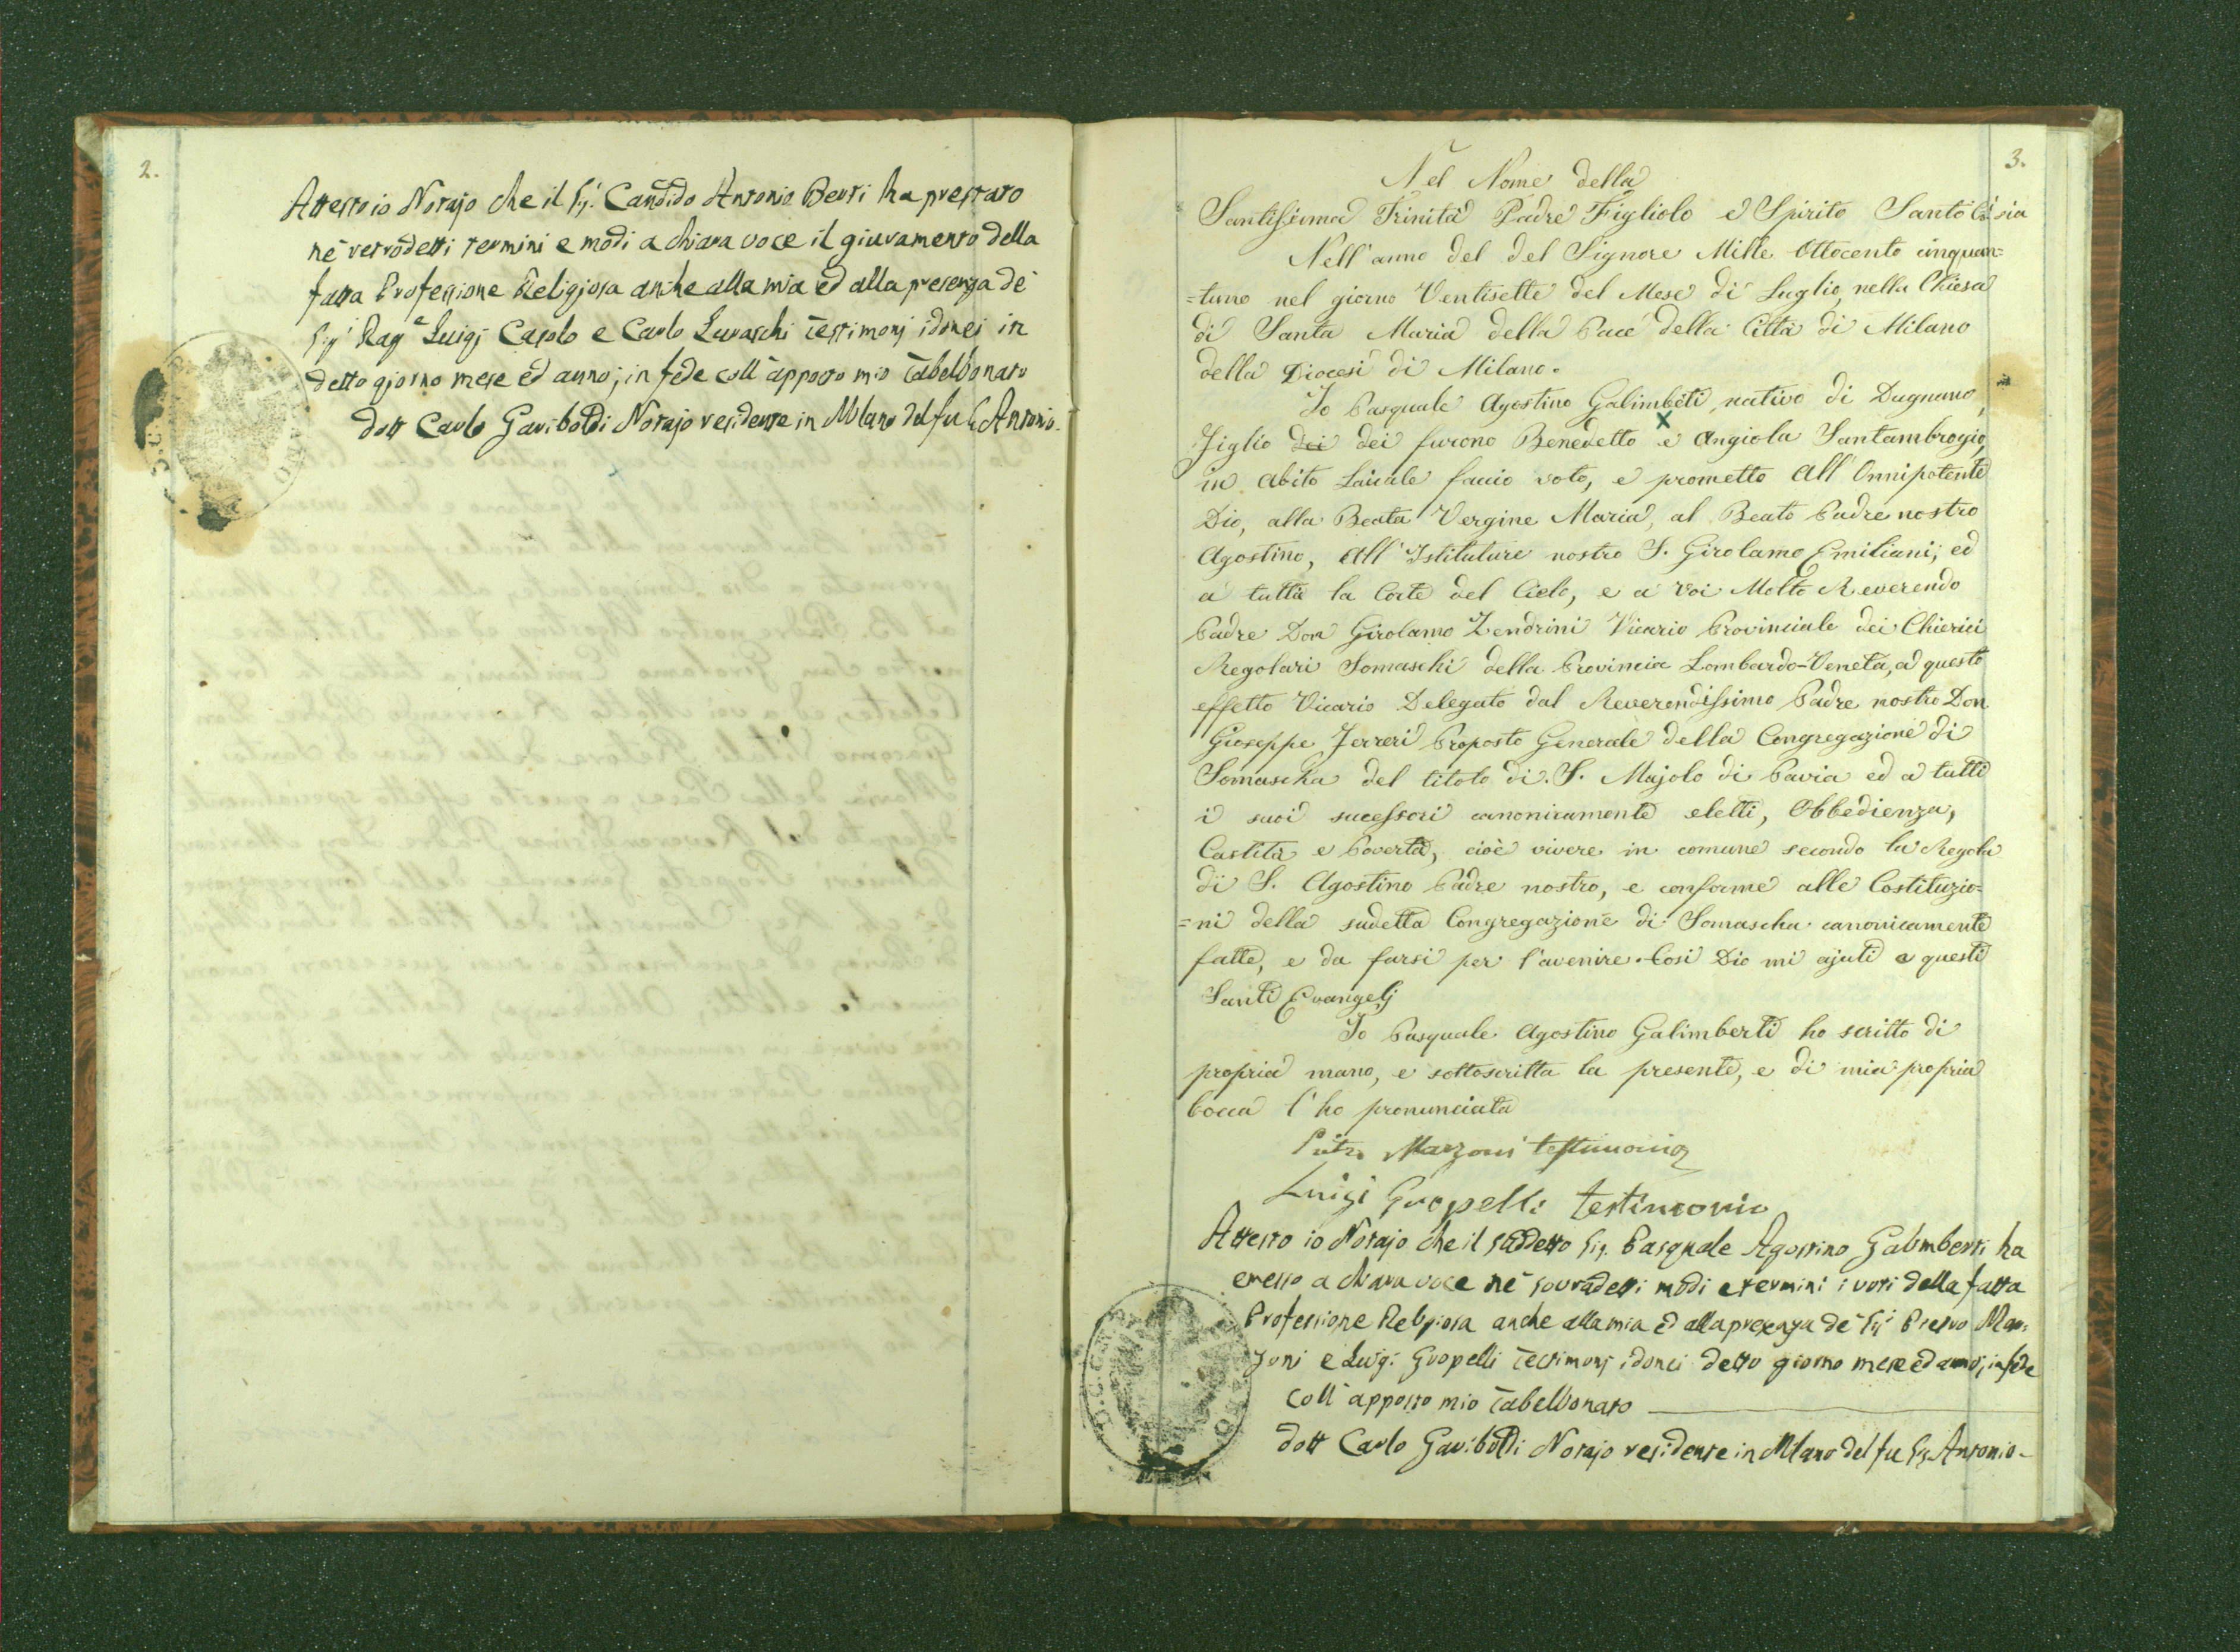 2.
Attesto io Notajo che il Sig.r Candido Antonio Berti ha prestato
ne' retrodetti termini e modi a chiara voce il giuramento della
fatta Professione Religiosa anche alla mia ed alla presenza de'
Sig.ri Rag.e Luigi Casolo e Carlo Luraschi Testimonj idonei in
detto giorno mese ed anno; in fede coll' apposto mio Tabellionato
dott Carlo Gariboldi Notajo residente in Milano del fu Antonio.
3.
Nel Nome della
Santissima Trinità Padre Figliolo e Spirito Santo Cosi sia
Nell' anno del del Signore Mille Ottocento cinquan=
=tuno nel giorno Ventisette del Mese di Luglio, nella Chiesa
di Santa Maria della Pace della Città di Milano
della Diocesi di Milano.
Io Pasquale Agostino Galimbeti, nativo di Dugnano,
Figlio dei dei furono Benedetto e Angiola Santambrogio,
in Abito Laicale faccio voto, e prometto All' Onnipotente
Dio, alla Beata Vergine Maria, al Beato Padre nostro
Agostino, All' Istituture nostro S. Girolamo Emiliani; ed
a tutta la Corte del Cielo, e a Voi Molto Reverendo
Padre Don Girolamo Zendrini Vicario Provinciale dei Chierici
Regolari Somaschi della Provincia Lombardo-Veneta, ad questo
effetto Vicario Delegato dal Reverendissimo Padre nostro Don
Gioseppe Ferreri Proposto Generale della Congregazione di
Somascha del titolo di S. Majolo di Pavia ed a tutti
i suoi sucessori canonicamente eletti, Obbedienza,
Castità e Povertà, cioè vivere in comune secondo la Regola
di S. Agostino Padre nostro, e conforme alle Costituzio=
=ni della sudetta Congregazione di Somascha canonicamente
fatte, e da farsi per l'avenire. Cosi Dio mi ajuti e questi
Santi Evangelj
Io Pasquale Agostino Galimberti ho scritto di
propria mano, e sottoscritta la presente, e di mia propria
bocca l'ho pronunciata
Pietro Marzoni testimonio
Luigi Gropelli testimonio
Attesto io Notajo che il suddetto Sig. Pasquale Agostino Galimberti ha
emesso a chiara voce ne' sovradetti modi e termini i voti della fatta
Professione Religiosa anche alla mia ed alla presenza de' Sig.ri Pietro Mar=
zoni e Luigi Gropelli Testimonj idonei detto giorno mese ed anno; in fede
coll' apposto mio Tabellionato
dott Carlo Gariboldi Notajo residente in Milano del fu Sig. Antonio-